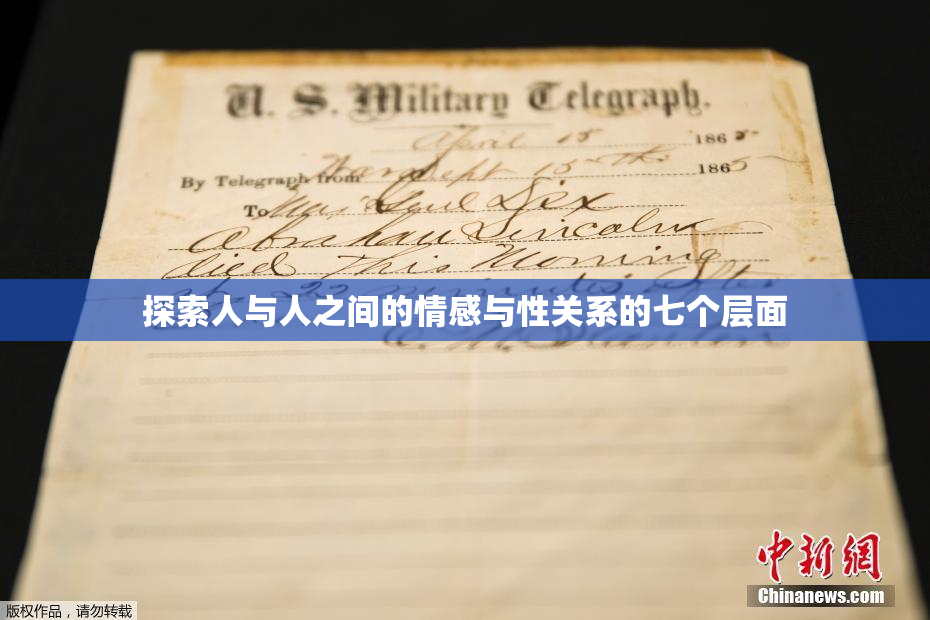 U. S. Military Telegraph.
April 15 1865
By Telegraph from War Dept 15th 1865
To Maj Genl Dix
Abraham Lincoln
died This Morning
at 22 minutes after
探索人与人之间的情感与性关系的七个层面
E. M. Stanton
中新網
Chinanews.com
版权作品，请勿转载